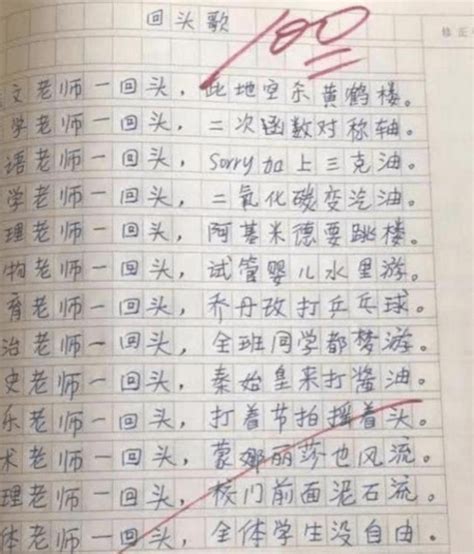 回头歌
100
修正
文老师一回头，此地空余黄鹤楼。
学老师一回头，二次函数对称轴。
语老师一回头，Sorry加上三克油。
学老师一回头，二氧化碳变汽油。
理老师一回头，阿基米德要跳楼。
物老师一回头，试管婴儿水里游。
育老师一回头，乔丹改打乒乓球。
治老师一回头，全班同学都梦游。
史老师一回头，秦始皇来打酱油。
乐老师一回头，打着节拍摇着头。
术老师一回头，蒙娜丽莎也风流。
理老师一回头，校门前面泥石流。
体老师一回头，全体学生没自由。